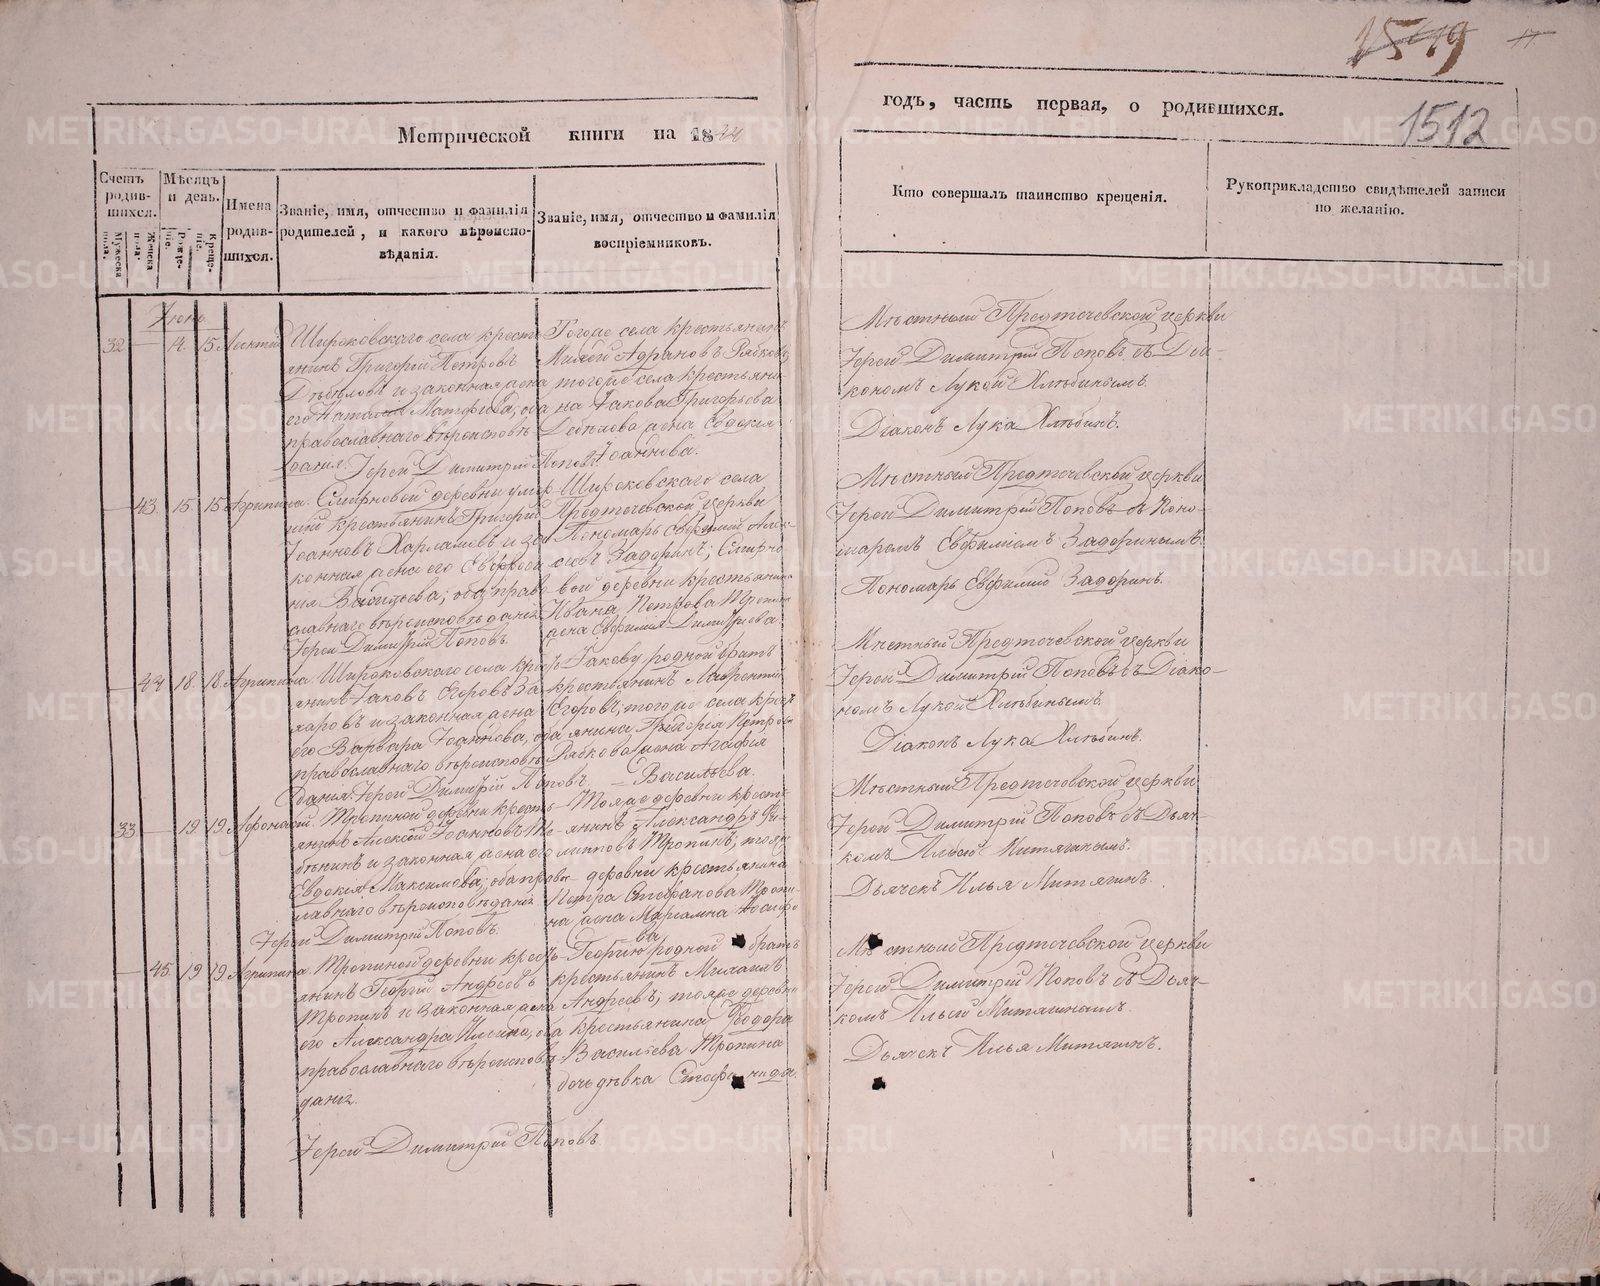 1519
17
1512
Метрической книги на 1844
годъ, часть первая, о родившихся.
Счетъ родив-шихся.
Мужеска пола.
Женска пола.
Мѣсяцъ и день.
Рожде-ніе.
Креще-ніе.
Имена родив-шихся.
Званіе, имя, отчество и фамилія родителей, и какого вѣроиспо-вѣданія.
Званіе, имя, отчество и фамилія воспріемниковъ.
Кто совершалъ таинство крещенія.
Рукоприкладство свидѣтелей записи по желанію.
Іюнь
32 — 14. 15. Леонтій
Широковскаго села кресть
янинъ Григорій Петровъ
и законная жена
его Наталія Матфіева, оба
православнаго вѣроисповѣ
данія. Іерей Димитрій Поповъ.
Тогоже села крестьянинъ
Адріановъ Рябковъ,
тогоже села крестьяни-
на Іакова Григорьева
жена Евдокія
Іоаннова.
Мѣстный Предтечевской церкви
Іерей Димитрій Поповъ съ Діа-
кономъ Лукой Хлѣбинымъ.
Діаконъ Лука Хлѣбинъ.
— 43. 15. 15. Агрипина.
Смирновой деревни умер
шій крестьянинъ Григорій
Іоанновъ Харламовъ и за
конная жена его
Васильева; оба право
славнаго вѣроисповѣданія
Іерей Димитрій Поповъ.
Широковскаго села
Предтечевской церкви
Пономарь Евфимій Алек-
сѣевъ Задоринъ; Смирно
вой деревни крестьянина
Ивана Петрова Тропина
жена Евфимія Димитріева
Мѣстный Предтечевской церкви
Іерей Димитрій Поповъ съ Поно-
маремъ Евфиміемъ Задоринымъ.
Пономарь Евфимій Задоринъ.
— 44. 18. 18. Агрипина.
Широковскаго села крест
янинъ Іаковъ Егоровъ За
харовъ и законная жена
его Варвара Іоаннова, оба
православнаго вѣроисповѣ
данія. Іерей Димитрій Поповъ.
Іакову родной братъ
крестьянинъ Лаврентій
Егоровъ; тогоже села крест
янина Григорія Петрова
Рябкова жена Агафія
Васильева.
Мѣстный Предтечевской церкви
Іерей Димитрій Поповъ съ Діако-
номъ Лукой Хлѣбинымъ.
Діаконъ Лука Хлѣбинъ.
33 — 19. 19. Афонасій.
Тропиной деревни кресть
янинъ Алексѣй Іоанновъ
и законная жена его
Евдокія Максимова, оба право
славнаго вѣроисповѣданія
Іерей Димитрій Поповъ.
Тояже деревни кресть
янинъ Александръ Фи-
липповъ Тропинъ; тояж
деревни крестьянина
Петра Стефанова Тропи
на жена Маріамна Іосифо
ва
Мѣстный Предтечевской церкви
Іерей Димитрій Поповъ съ Дьяч-
комъ Ильей Митягинымъ.
Дьячекъ Илья Митягинъ.
— 45. 19 19. Агрипина.
Тропиной деревни крест
янинъ Георгій Андреевъ
Тропинъ и законная жена
его Александра Ильина, оба
православнаго вѣроисповѣ
данія.
Іерей Димитрій Поповъ
Георгію родной братъ
крестьянинъ Михаилъ
Андреевъ; тояже деревни
крестьянина Ѳеодора
Васильева Тропина
дочь дѣвка Стефанида.
Мѣстный Предтечевской церкви
Іерей Димитрій Поповъ съ Дьяч-
комъ Ильей Митягинымъ.
Дьячекъ Илья Митягинъ.
METRIKI.GASO-URAL.RU